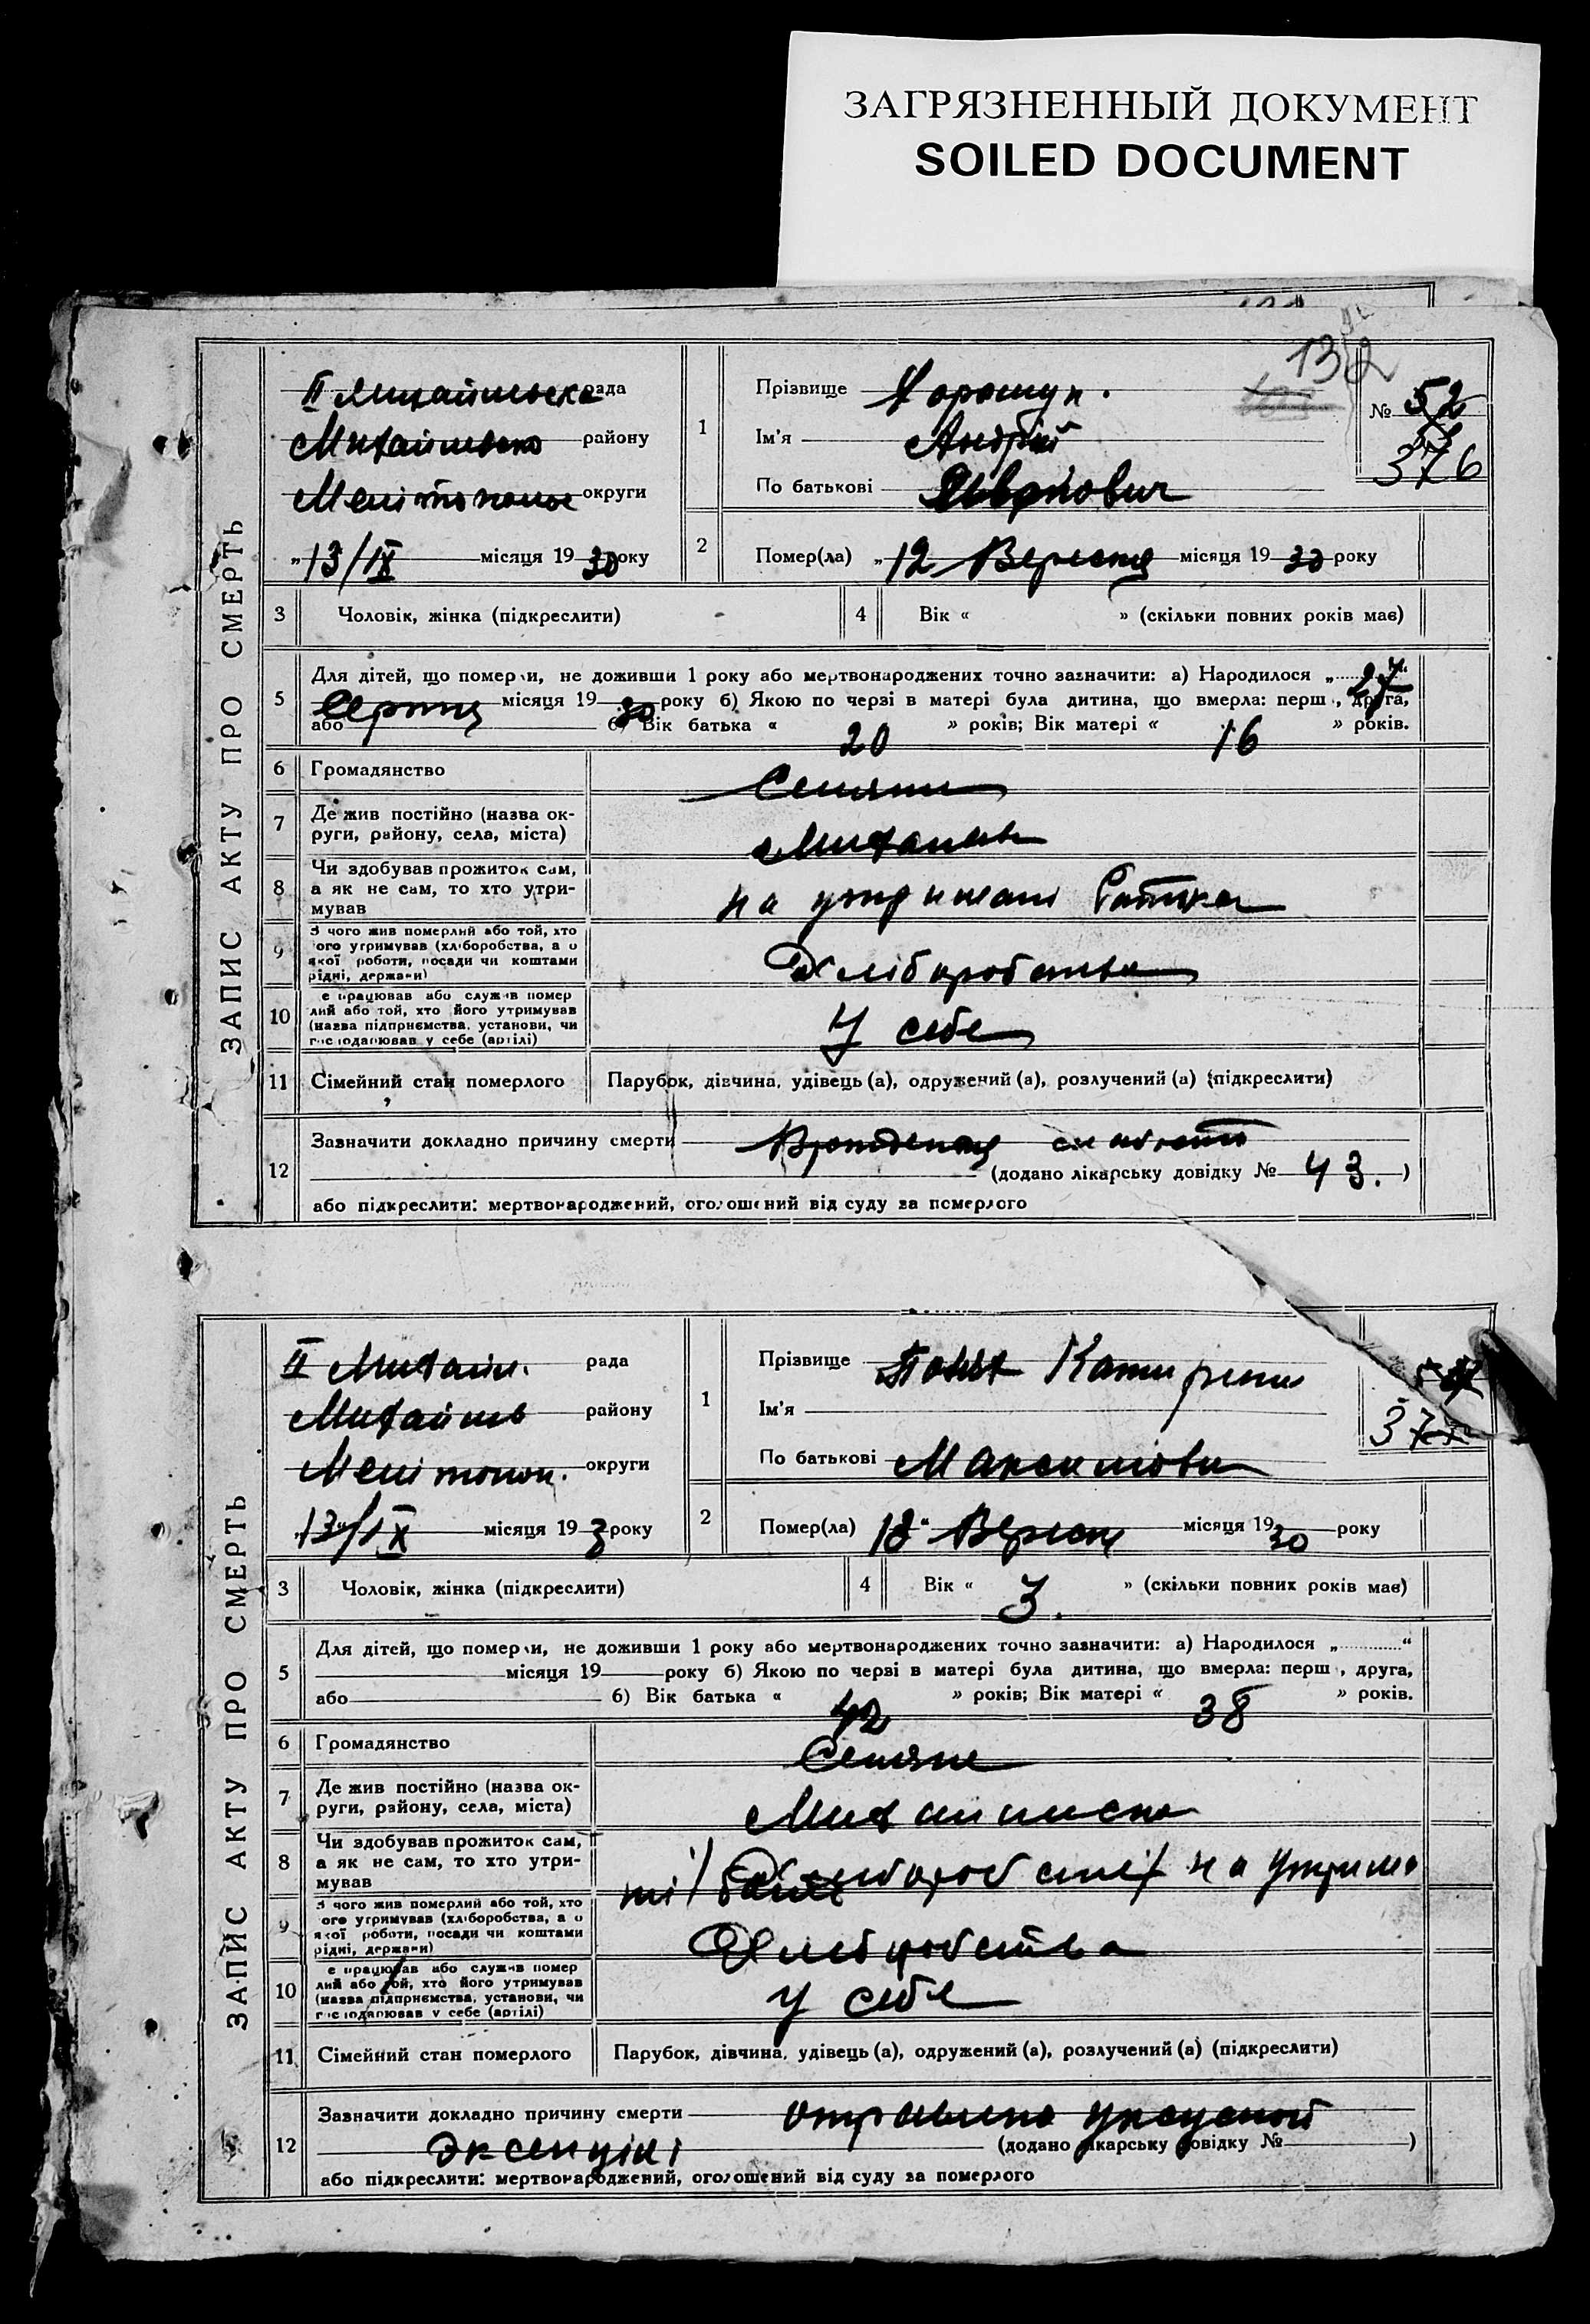 ЗАГРЯЗНЕННЫЙ ДОКУМЕНТ
SOILED DOCUMENT
132
ЗАПИС АКТУ ПРО СМЕРТЬ
ІІ Михайлівська рада
Михайлівсько району
округи
„13/ІХ місяця 1930 року
1
Прізвище
Ім'я Андрій
По батькові Іванович
№ 52
376
2
Помер(ла) „12 Вересня місяця 1930 року
3 Чоловік, жінка (підкреслити)
4 Вік « » (скільки повних років має)
5
Для дітей, що померли, не доживши 1 року або мертвонароджених точно зазначити: а) Народилося „27
Серпня місяця 1930 року б) Якою по черзі в матері була дитина, що вмерла: перш , друга,
або б) Вік батька « 20 » років; Вік матері « 16 » років.
6 Громадянство Селяни
7 Де жив постійно (назва ок-
руги, району, села, міста)
8 Чи здобував прожиток сам,
а як не сам, то хто утри-
мував
на утримані батька
9 З чого жив померлий або той, хто
ого утримував (хліборобства, а о
якої роботи, посади чи коштами
рідні, держави)
Хліборобства
10 е працював або служив помер
лий або той, хто його утримував
(назва підприємства, установи, чи
господарював у себе (артілі)
У себе
11 Сімейний стан померлого Парубок, дівчина, удівець (а), одружений (а), розлучений (а) (підкреслити)
12
Зазначити докладно причину смерти Врожденая слабость
(додано лікарську довідку № 43. )
або підкреслити: мертвонароджений, оголошений від суду за померлого
ЗАПИС АКТУ ПРО СМЕРТЬ
ІІ Михайл. рада
Михайлів району
Мелітопол. округи
„13"/ІХ місяця 193 року
1
Прізвище
Ім'я
По батькові
377
2
Помер(ла) Вересня місяця 1930 року
3 Чоловік, жінка (підкреслити)
4 Вік « 3. » (скільки повних років має)
5
Для дітей, що померли, не доживши 1 року або мертвонароджених точно зазначити: а) Народилося „ “
місяця 19 року б) Якою по черзі в матері була дитина, що вмерла: перш , друга,
або б) Вік батька « 42 » років; Вік матері « 38 » років.
6 Громадянство Селяне
7 Де жив постійно (назва ок-
руги, району, села, міста)
8 Чи здобував прожиток сам,
а як не сам, то хто утри-
мував
на утрима
9 З чого жив померлий або той, хто
ого утримував (хліборобства, а о
якої роботи, посади чи коштами
рідні, держави)
Хліборобства
10 е працював або служив помер
лий або той, хто його утримував
(назва підприємства, установи, чи
господарював у себе (артілі)
у себе
11 Сімейний стан померлого Парубок, дівчина, удівець (а), одружений (а), розлучений (а) (підкреслити)
12
Зазначити докладно причину смерти уксусной
(додано лікарську довідку № )
або підкреслити: мертвонароджений, оголошений від суду за померлого